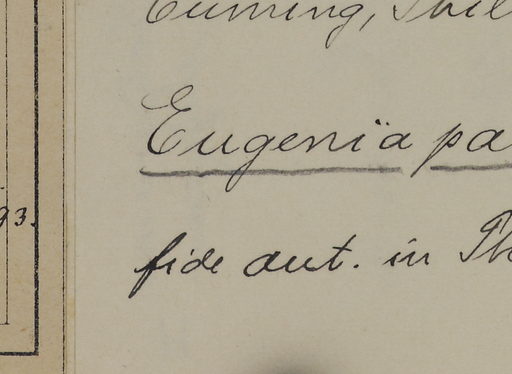 Cuming, Phil
Eugenia pa
93.
fide aut. in Ph